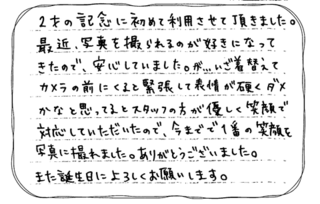 2才の記念に初めて利用させて頂きました。
最近、写真を撮られるのが好きになって
きたので、安心していました。が…いざ着替えて
カメラの前にくると緊張して表情が硬くダメ
かなと思ってるとスタッフの方が優しく笑顔で
対応していただいたので、今までで1番の笑顔を
写真に撮れました。ありがとうございました。
また誕生日によろしくお願いします。